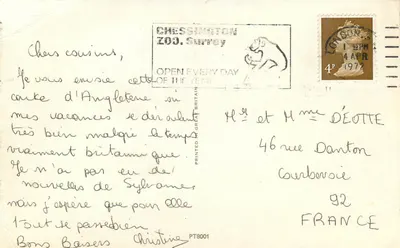 CHESSINGTON
ZOO. Surrey
OPEN EVERY DAY
OF THE YEAR
LONDON
1 PM
4 APR
197
4P
Chers cousins,
Je vous envoie cette
carte d'Angleterre, où
mes vacances se déroulent
très bien malgré le temps
vraiment britannique.
Je n'ai pas eu de
nouvelles de Sylvaine
mais j'espère que pour elle
tout se passe bien.
Bons Baisers
Christine
PRINTED IN GREAT BRITAIN
PT8001
Mr et Mme DÉOTTE
46 rue Danton
Courbevoie
92
FRANCE